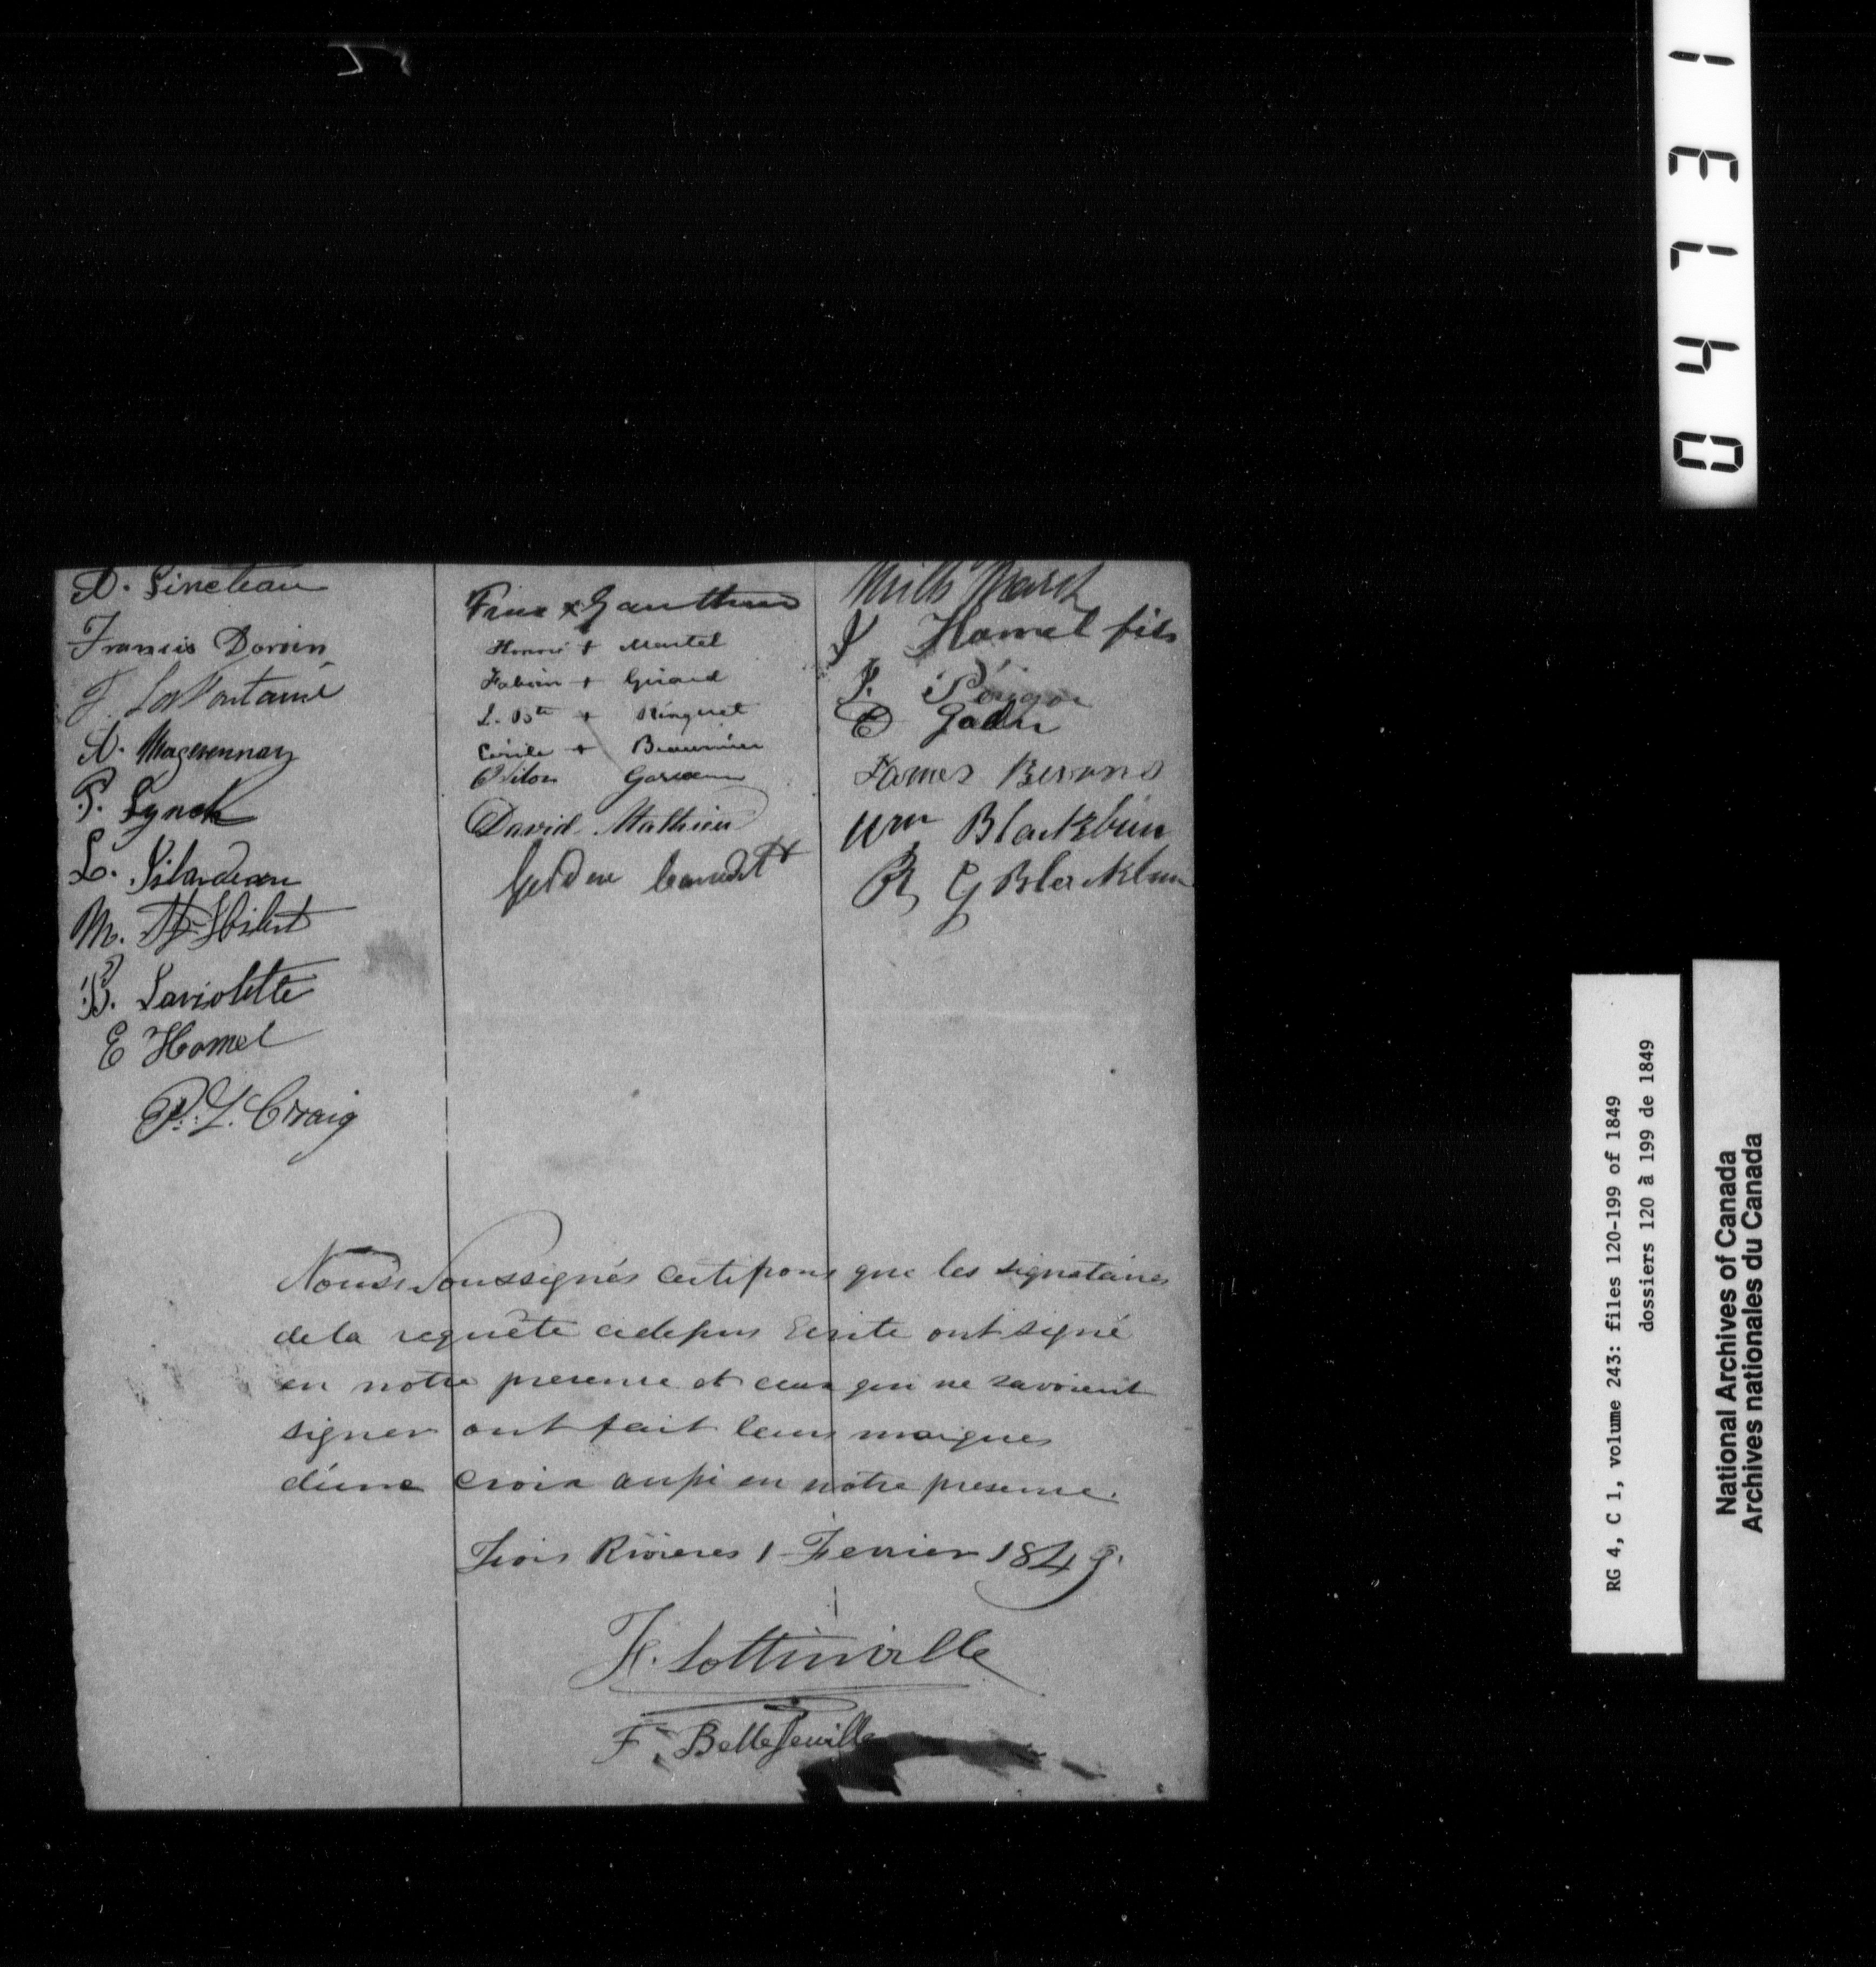 Francis Dorvin
F. LaFontaine
P. Lynch
L. Pilardeau
M.
B. Laviolette
E Hamel
P. L. Craig
Gauthier
Honoré + Martel
Fabien + Girard
L. Bte + Ringuet
Cécile + Beaumier
David Mathieu
Hamel fils
P.
E Gadin
James Bevans
Wm Blackburn
R G Blackburn
Nous Soussignés certifions que les signataires
de la requête cidessus Ecrite ont signé
en notre presence et ceux qui ne savoient
signer ont fait leurs marques
d'une croix aussi en notre presence.
Trois Rivieres 1 Fevrier 1849.
F. Lottinville
F. Bellefeuille
04131
RG 4, C 1, volume 243: files 120-199 of 1849
dossiers 120 à 199 de 1849
National Archives of Canada
Archives nationales du Canada